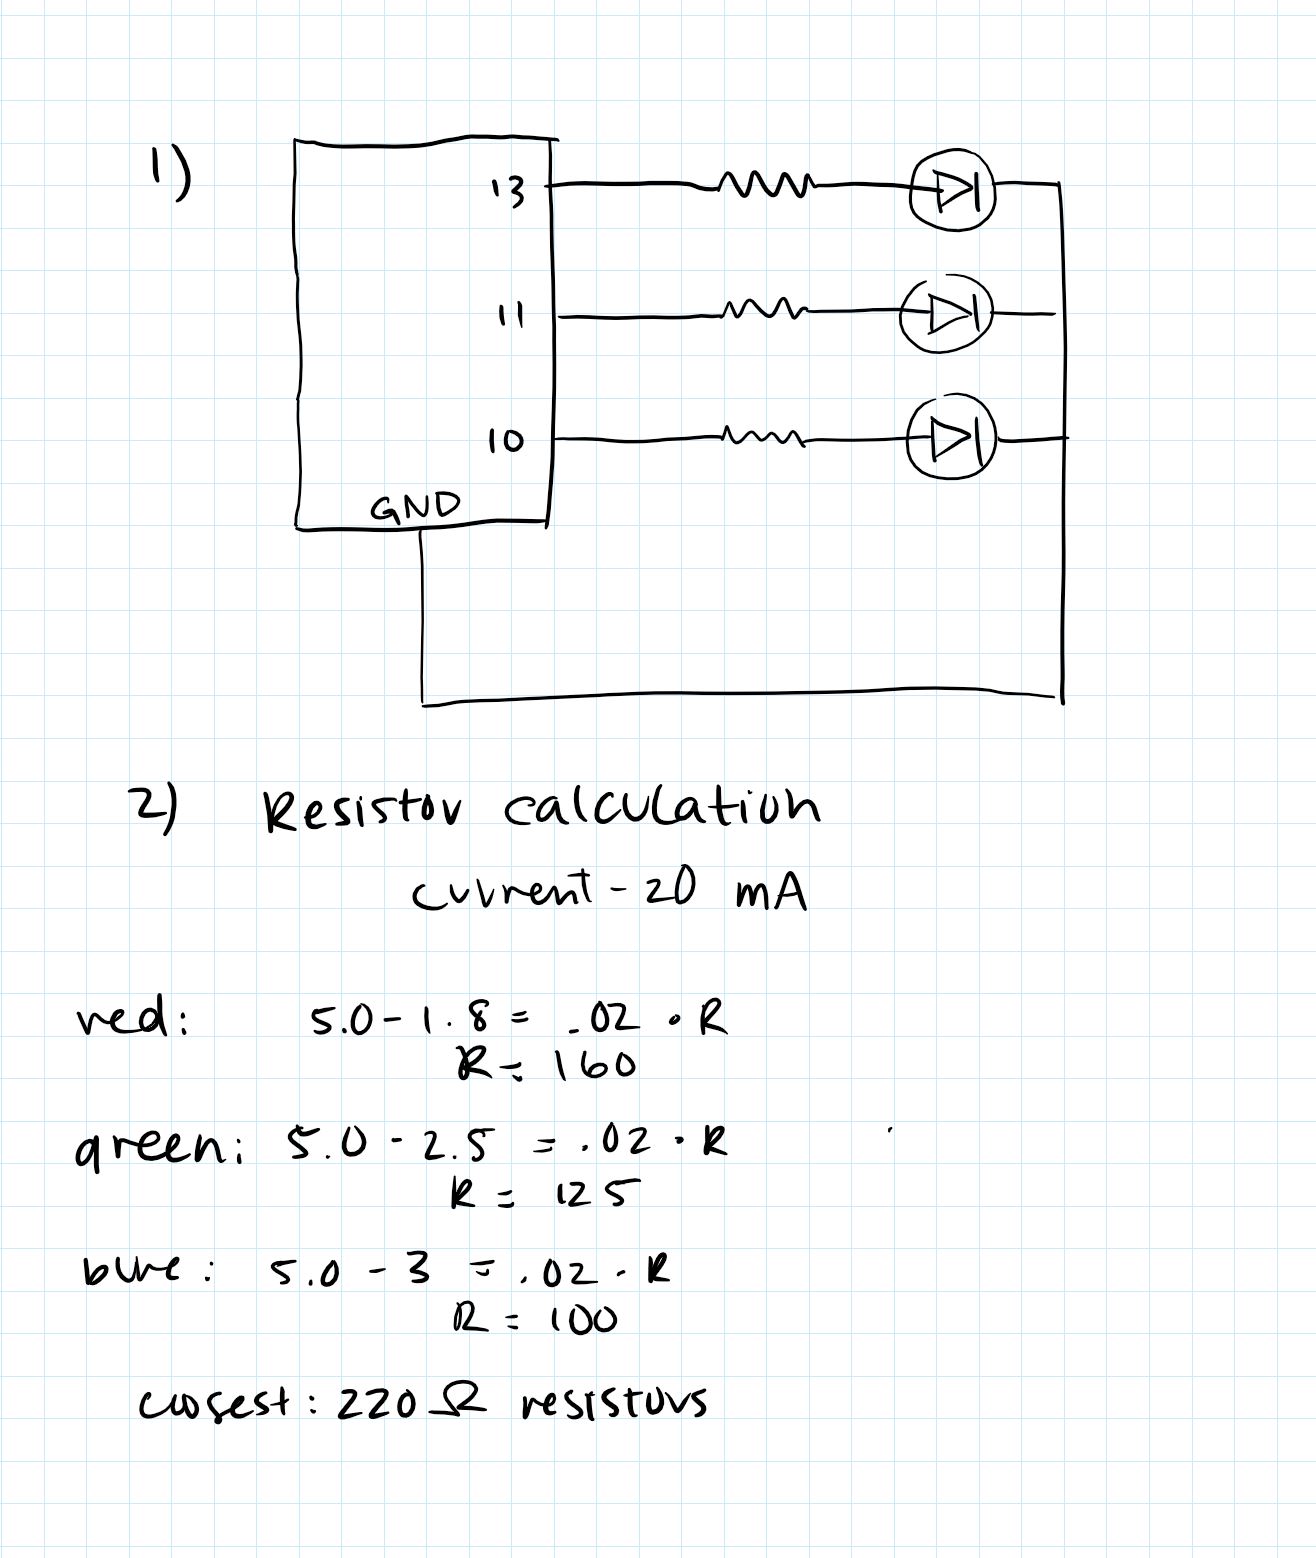 1)
13
11
10
GND
2) Resistor calculation
current - 20 mA
red: 5.0 - 1.8 = .02 • R
R = 160
green: 5.0 - 2.5 = .02 • R
R = 125
blue: 5.0 - 3 = .02 • R
R = 100
closest: 220 Ω resistors